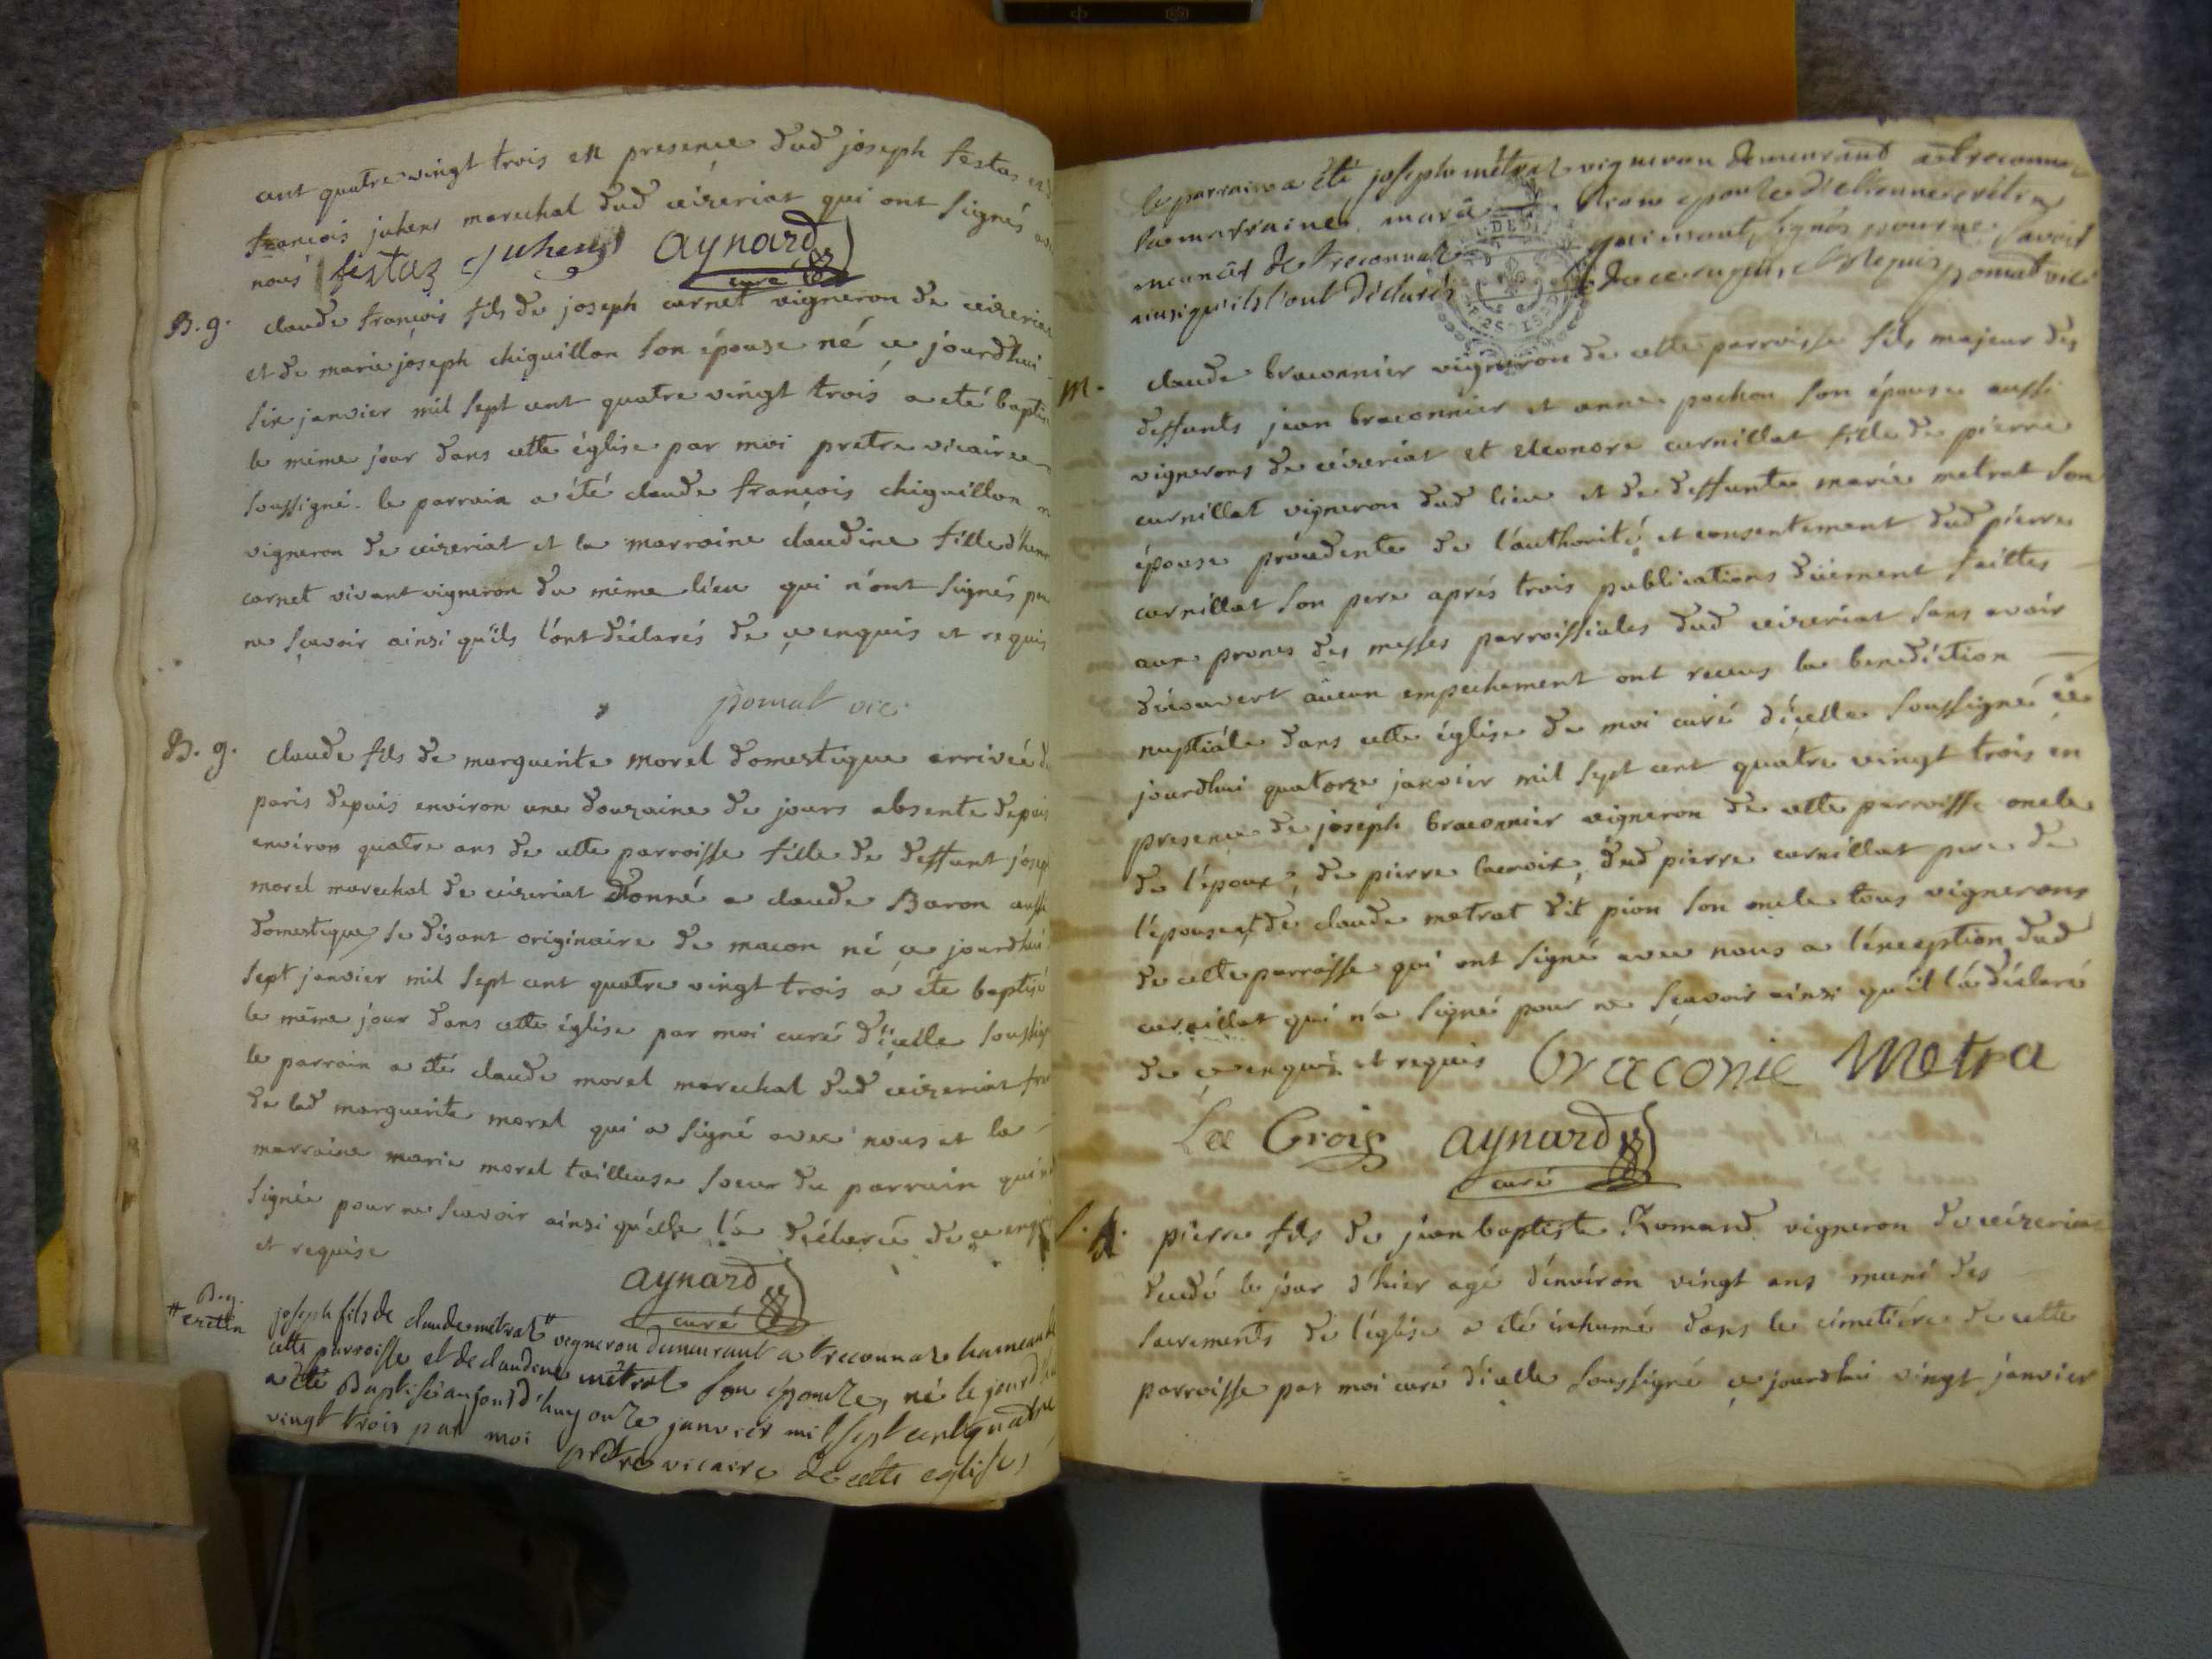 cent quatre vingt trois en presence dud joseph festas et
françois juhens marechal dud ceizeriat qui ont signés
nous festaz juhens aynard
curé
B. g. claude françois fils de joseph carnet vigneron de ceizeriat
et de marie joseph chiquillon son épouse né ce jourdhui
six janvier mil sept cent quatre vingt trois a eté
le même jour dans cette église par moi pretre vicaire
soussigné. le parrain a été claude françois chiquillon
vigneron de ceizeriat et la marraine claudine fille
carnet vivant vigneron du même lieu qui n'ont signés
ne sçavoir ainsi qu'ils l'ont déclarés de ce enquis et requis
pomat vic
B. g. claude fils de marguerite morel domestique arrivée
paris depuis environ une douzaine de jours absente depuis
environ quatre ans de cette parroisse fille de deffunt
morel marechal de ceizeriat donné a claude Baron aussi
domestique se disant originaire de macon né ce jourdhui
sept janvier mil sept cent quatre vingt trois a été baptisé
le même jour dans cette église par moi curé d'icelle
le parrain a été claude morel marechal dud ceizeriat
de lad marguerite morel qui a signé avec nous et la
marraine marie morel tailleuse soeur du parrain
signée pour ne scavoir ainsi qu'elle l'a déclaré de ce
et requise
aynard
curé
B. g.
joseph fils de claude métrat # vigneron demeurant a treconnaz hameau
cette parroisse et de claudine métrat son épouze, né le jour
a été Baptisé aujourd'huy onze janvier mil sept cent quatre
vingt trois par moi prêtre vicaire de cette eglise,
le parrain a été joseph métrat vigneron demeurant a treconnaz
la marraine
de treconnaz qui n'ont signés pour ne savoir
ainsi qu'ils l'ont déclarés de ce enquis, et requis pomat vic
M. claude braconnier vigneron de cette parroisse fils majeur des
deffunts jean braconnier et anne pochon son épouse aussi
vignerons de ceizeriat et eleonore carnillat fille de pierre
carnillat vigneron dud lieu et de deffunte marie metrat son
épouse procedente de l'authorité et consentement dud pierre
carnillat son pere aprés trois publications düement faittes
aux prones des messes parroissiales dud ceizeriat sans avoir
découvert aucun empechement ont receus la benediction
nuptiale dans cette église de moi curé d'icelle soussigné ce
jourdhui quatorze janvier mil sept cent quatre vingt trois en
presence de joseph braconnier vigneron de cette parroisse oncle
de l'époux, de pierre lacroix, dud pierre carnillat pere de
l'épouse et de claude metrat dit pion son oncle tous vignerons
de cette parroisse qui ont signé avec nous a l'exception dud
carnillat qui n'a signé pour ne sçavoir ainsi qu'il l'a déclaré
de ce enquis et requis braconie Metra
La Croix aynard
curé
S. pierre fils de jean baptiste Romand vigneron de ceizeriat
decedé le jour d'hier agé d'environ vingt ans muni des
sacrements de l'église a été inhumé dans le cimetiére de cette
parroisse par moi curé d'icelle soussigné ce jourdhui vingt janvier